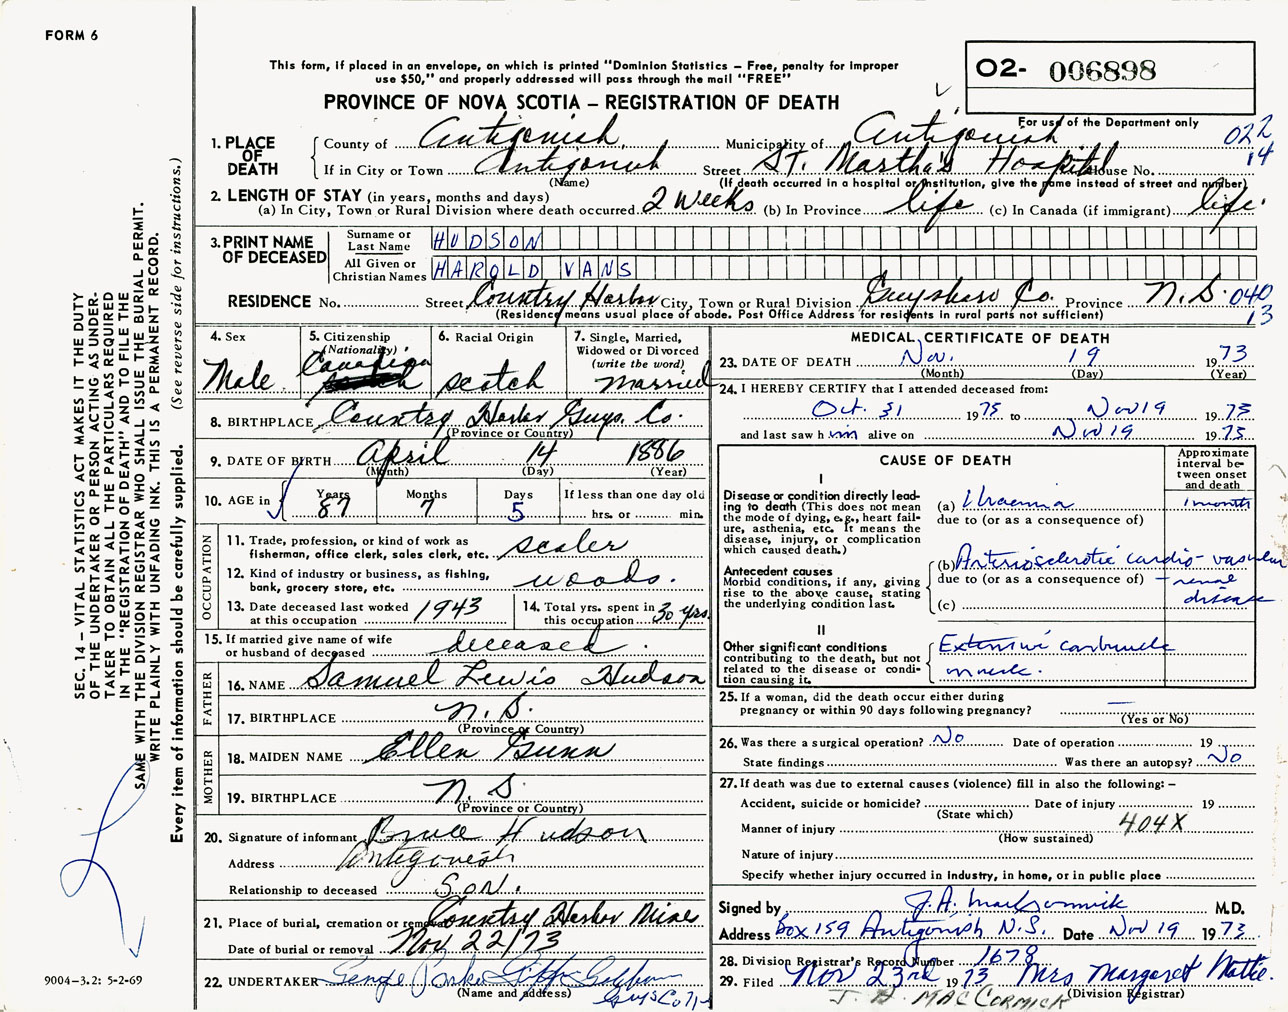 FORM 6
This form, if placed in an envelope, on which is printed "Dominion Statistics – Free, penalty for improper
use $50," and properly addressed will pass through the mail "FREE"
O2- 006898
PROVINCE OF NOVA SCOTIA – REGISTRATION OF DEATH
For use of the Department only
1. PLACE OF DEATH
County of Antigonish Municipality of Antigonish 022
If in City or Town Antigonish Street St. Martha's Hospital House No. 14
(Name) (If death occurred in a hospital or institution, give the name instead of street and number)
2. LENGTH OF STAY (in years, months and days)
(a) In City, Town or Rural Division where death occurred 2 Weeks (b) In Province life (c) In Canada (if immigrant) life.
3. PRINT NAME OF DECEASED
Surname or Last Name HUDSON
All Given or Christian Names HAROLD VANS
RESIDENCE No. Street Country Harbor City, Town or Rural Division Guysboro Co. Province N.S. 040
(Residence means usual place of abode. Post Office Address for residents in rural parts not sufficient) 13
4. Sex Male
5. Citizenship (Nationality) Canadian
6. Racial Origin scotch
7. Single, Married, Widowed or Divorced (write the word) married
8. BIRTHPLACE Country Harbor Guys. Co.
(Province or Country)
9. DATE OF BIRTH April 14 1886
(Month) (Day) (Year)
10. AGE in Years 87 Months 7 Days 5 If less than one day old
hrs. or min.
OCCUPATION
11. Trade, profession, or kind of work as
fisherman, office clerk, sales clerk, etc. scaler
12. Kind of industry or business, as fishing,
bank, grocery store, etc. woods.
13. Date deceased last worked
at this occupation 1943
14. Total yrs. spent in
this occupation 30 yrs.
15. If married give name of wife
or husband of deceased deceased.
FATHER
16. NAME Samuel Lewis Hudson
17. BIRTHPLACE N.S.
(Province or Country)
MOTHER
18. MAIDEN NAME Ellen Gunn
19. BIRTHPLACE N.S.
(Province or Country)
20. Signature of informant Bruce Hudson
Address Antigonish
Relationship to deceased Son.
21. Place of burial, cremation or removal Country Harbor Mines
Date of burial or removal Nov 22/73
22. UNDERTAKER George
(Name and address) Guys Co
MEDICAL CERTIFICATE OF DEATH
23. DATE OF DEATH Nov. 19 1973
(Month) (Day) (Year)
24. I HEREBY CERTIFY that I attended deceased from:
Oct. 31 1973 to Nov 19 1973
and last saw him alive on Nov 19 1973
CAUSE OF DEATH
Approximate interval between onset and death
I
Disease or condition directly lead-
ing to death (This does not mean
the mode of dying, e.g., heart fail-
ure, asthenia, etc. It means the
disease, injury, or complication
which caused death.)
(a) Uraemia 1 month
due to (or as a consequence of)
Antecedent causes
Morbid conditions, if any, giving
rise to the above cause, stating
the underlying condition last.
(b) Arteriosclerotic cardio-vascular
due to (or as a consequence of) – renal
(c) disease
II
Other significant conditions
contributing to the death, but not
related to the disease or condi-
tion causing it.
Extensive carbuncle
neck.
25. If a woman, did the death occur either during
pregnancy or within 90 days following pregnancy? —
(Yes or No)
26. Was there a surgical operation? No Date of operation 19
State findings Was there an autopsy? No
27. If death was due to external causes (violence) fill in also the following: –
Accident, suicide or homicide? Date of injury 19
(State which)
Manner of injury 404X
(How sustained)
Nature of injury
Specify whether injury occurred in industry, in home, or in public place
Signed by J.A. MacCormick M.D.
Address Box 159 Antigonish N.S. Date Nov 19 1973
28. Division Registrar's Record Number 1678
29. Filed Nov 23rd 1973 Mrs Margaret
(Division Registrar)
J. A. MACCORMICK
SEC. 14 – VITAL STATISTICS ACT MAKES IT THE DUTY
OF THE UNDERTAKER OR PERSON ACTING AS UNDER-
TAKER TO OBTAIN ALL THE PARTICULARS REQUIRED
IN THE "REGISTRATION OF DEATH" AND TO FILE THE
SAME WITH THE DIVISION REGISTRAR WHO SHALL ISSUE THE BURIAL PERMIT.
WRITE PLAINLY WITH UNFADING INK. THIS IS A PERMANENT RECORD.
Every item of information should be carefully supplied. (See reverse side for instructions.)
9004-3.2: 5-2-69